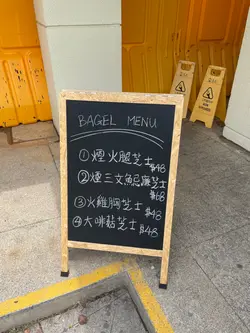 BAGEL MENU
①煙火腿芝士$48
②煙三文魚忌廉芝士
$68
③火雞胸芝士
$48
④大啡菇芝士$48